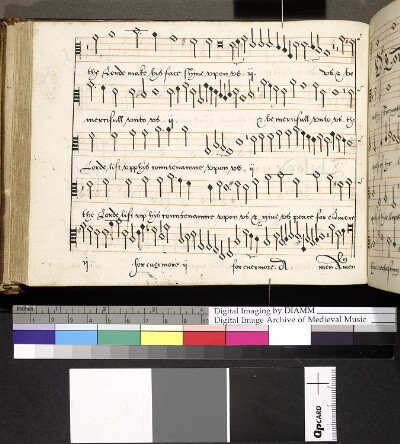 the Lorde make his face shyne vpon vs . ij. vs & be
mercifull vnto vs . ij & be mercifull vnto vs. the
Lorde lift vpp his countenaunce vpon vs . ij.
the Lorde lift vp his countenaunce vpon vs & give vs peace for evermore
ij. for evermore ij for evermore. A men Amen
inches 1 2 3
Digital Imaging by DIAMM
Digital Image Archive of Medieval Music
apCARD